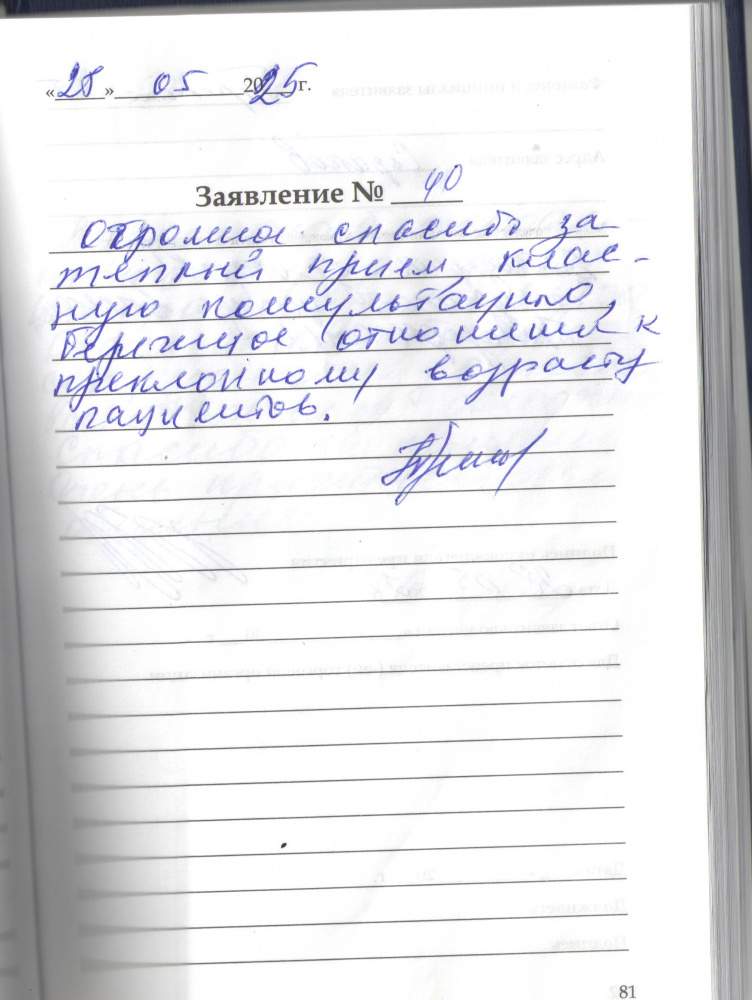 «28» 05 2025 г.
Заявление № 40
Огромное спасибо за
теплый прием, клас-
ную консультацию,
бережное отношение к
преклонному возрасту
пациентов.
81